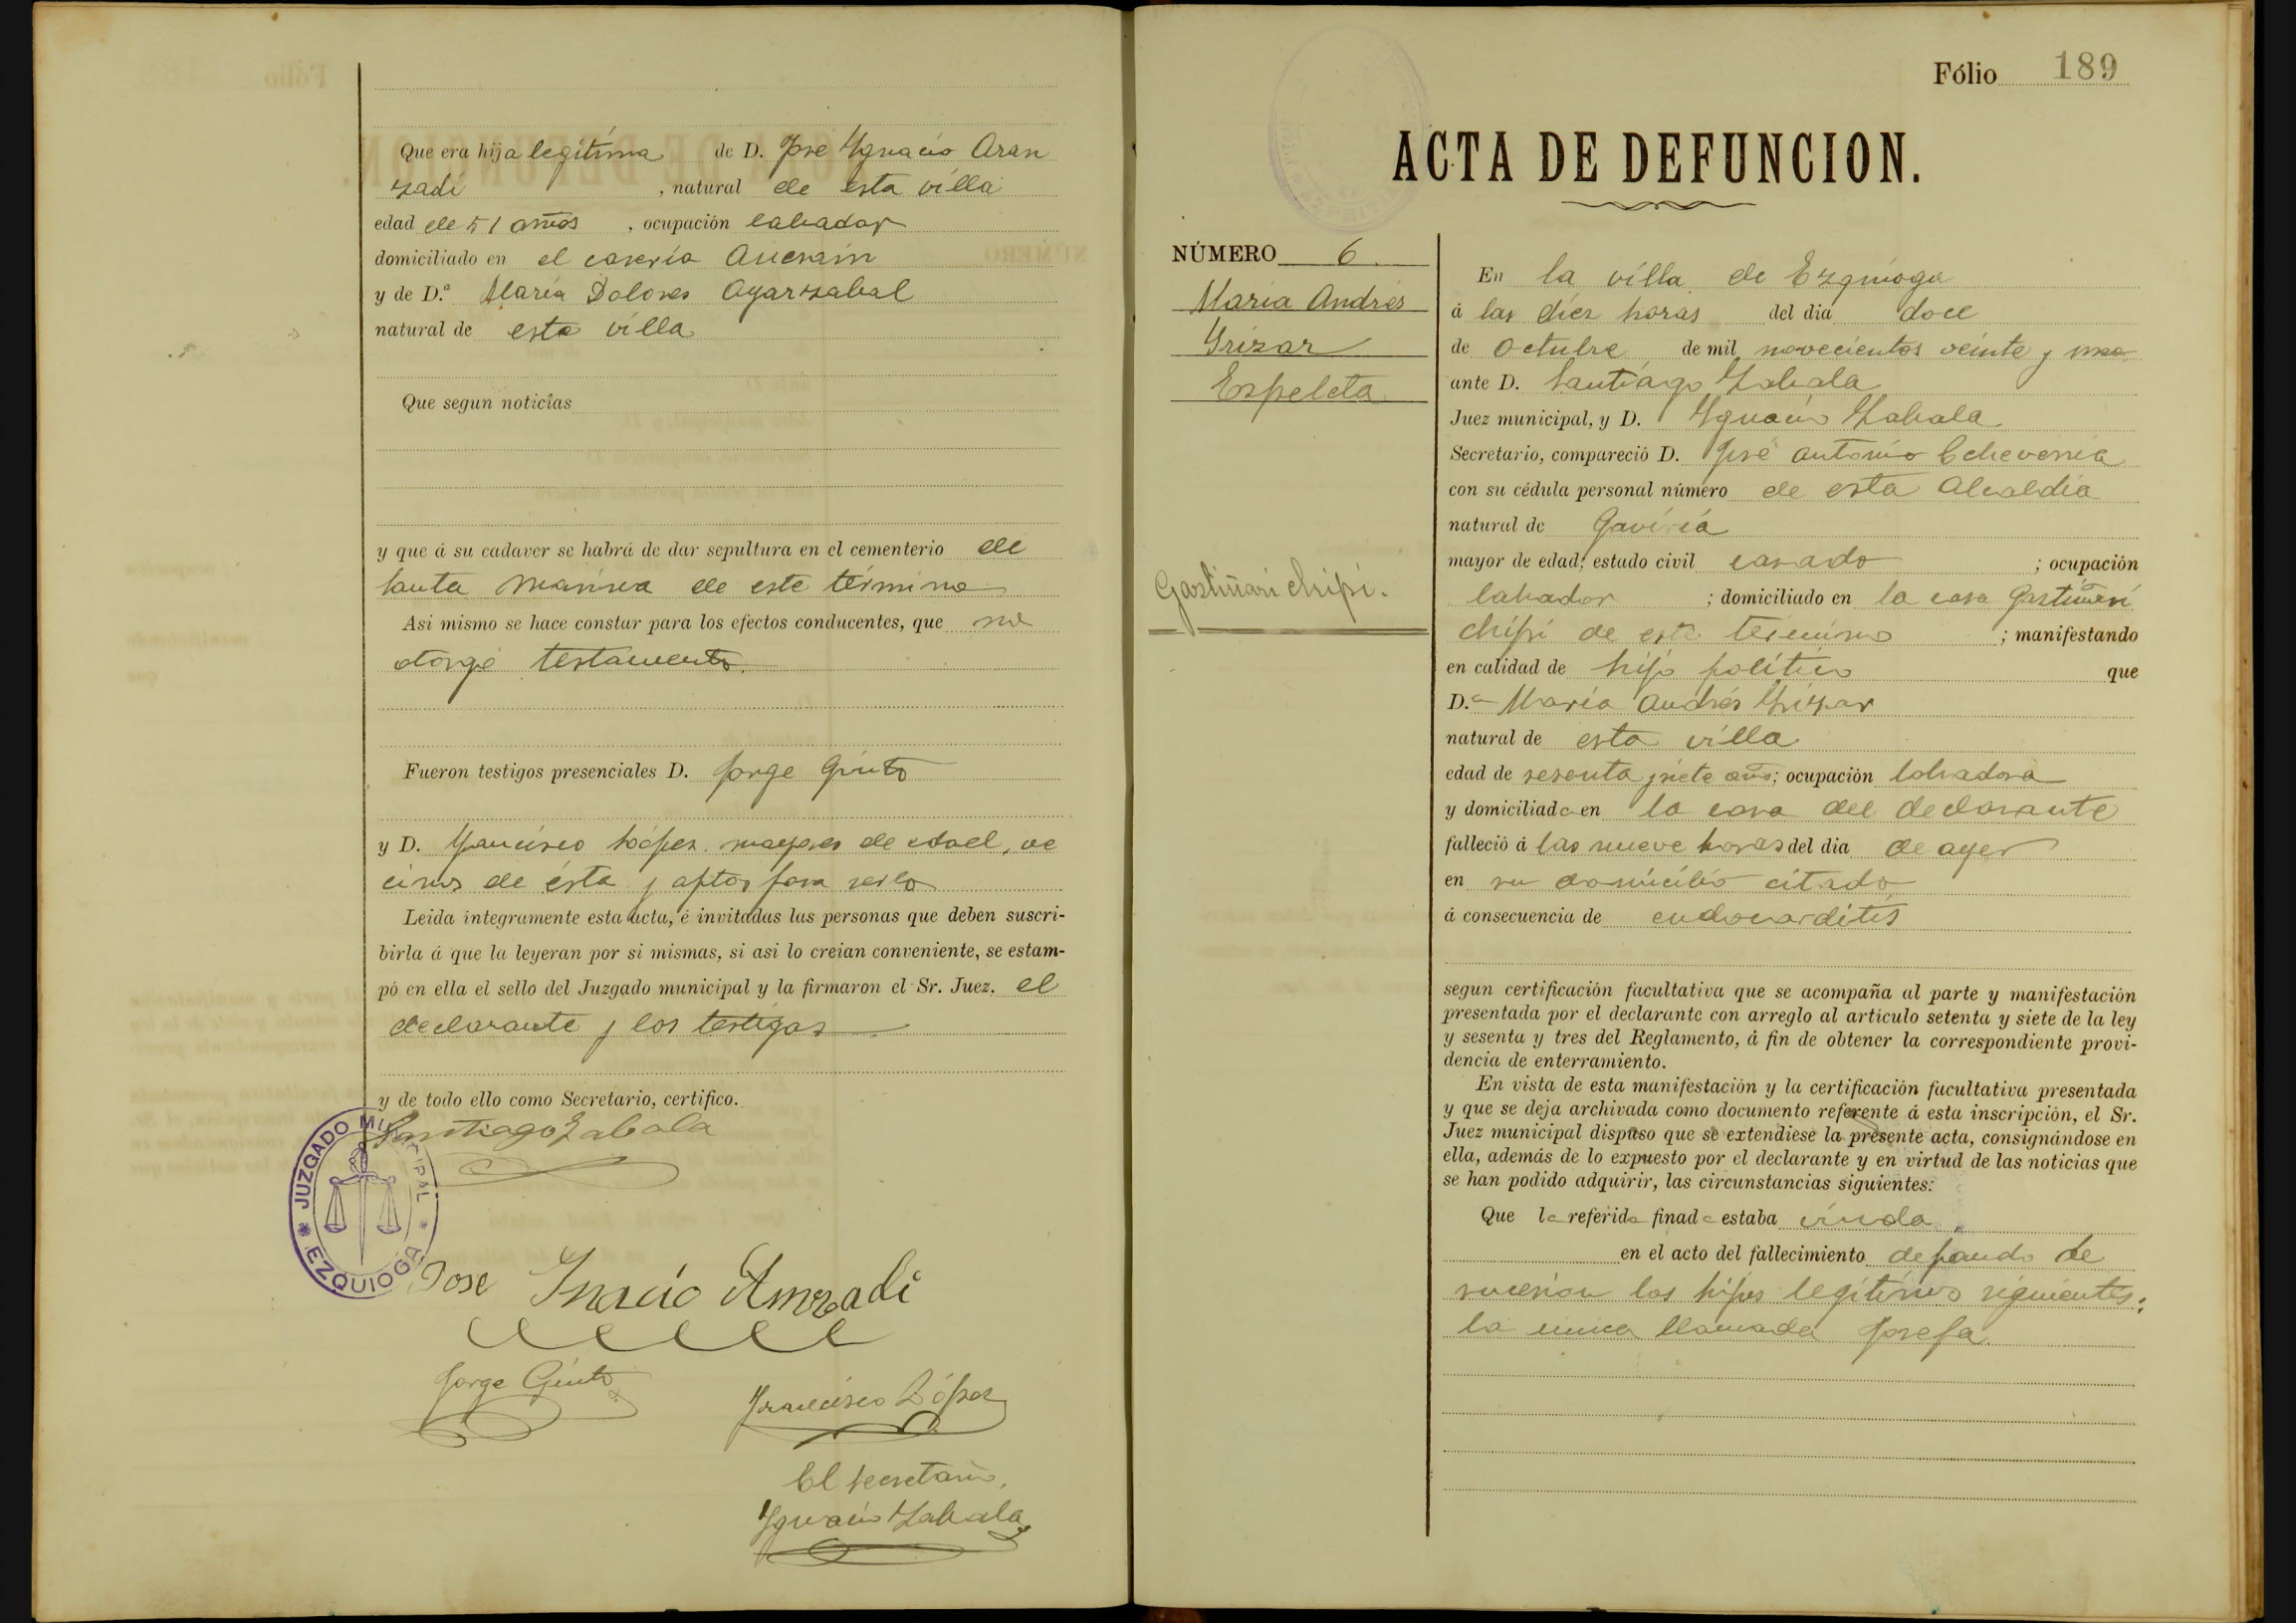 Que era hija legítima de D. José Ygnacio Aran
zadi , natural de esta villa
edad de 51 años , ocupación labrador
domiciliado en el caserío
y de D.ª María Dolores Oyarzabal
natural de esta villa
Que segun noticias
y que á su cadaver se habrá de dar sepultura en el cementerio de
Santa Marina de este término
Asi mismo se hace constar para los efectos conducentes, que no
otorgó testamento.
Fueron testigos presenciales D. Jorge Guito
y D. Francisco López mayores de edad, ve
cinos de ésta y aptos para serlo
Leida integramente esta acta, é invitadas las personas que deben suscri-
birla á que la leyeran por si mismas, si asi lo creian conveniente, se estam-
pó en ella el sello del Juzgado municipal y la firmaron el Sr. Juez. el
declarante y los testigos
y de todo ello como Secretario, certifico.
Santiago Zabala
JUZGADO MUNICIPAL
EZQUIOGA
Jose
Jorge
Francisco López
El Secretario,
Ygnacio Zabala
Fólio 189
ACTA DE DEFUNCION.
NÚMERO 6
María Andrés
Yrizar
Ezpeleta
Gastiñari chipi.
En la villa de Ezquioga
á las diez horas del dia doce
de Octubre de mil novecientos veinte y uno
ante D. Santiago Zabala
Juez municipal, y D. Ygnacio Zabala
Secretario, compareció D. José Antonio Echeverria
con su cédula personal número de esta Alcaldía
natural de Gaviria
mayor de edad; estado civil casado ; ocupación
labrador ; domiciliado en la casa Gastiñari
chipi de este término ; manifestando
en calidad de hijo político que
D.ª María Andrés Yrizar
natural de esta villa
edad de sesenta y siete años; ocupación labradora
y domiciliada en la casa del declarante
falleció á las nueve horas del dia de ayer
en su domicilio citado
á consecuencia de endocarditis
segun certificación facultativa que se acompaña al parte y manifestación
presentada por el declarante con arreglo al artículo setenta y siete de la ley
y sesenta y tres del Reglamento, á fin de obtener la correspondiente provi-
dencia de enterramiento.
En vista de esta manifestación y la certificación facultativa presentada
y que se deja archivada como documento referente á esta inscripción, el Sr.
Juez municipal dispuso que se extendiese la presente acta, consignándose en
ella, además de lo expuesto por el declarante y en virtud de las noticias que
se han podido adquirir, las circunstancias siguientes:
Que la referida finada estaba viuda
en el acto del fallecimiento dejando de
sucesion los hijos legítimos siguientes:
la única llamada Josefa.